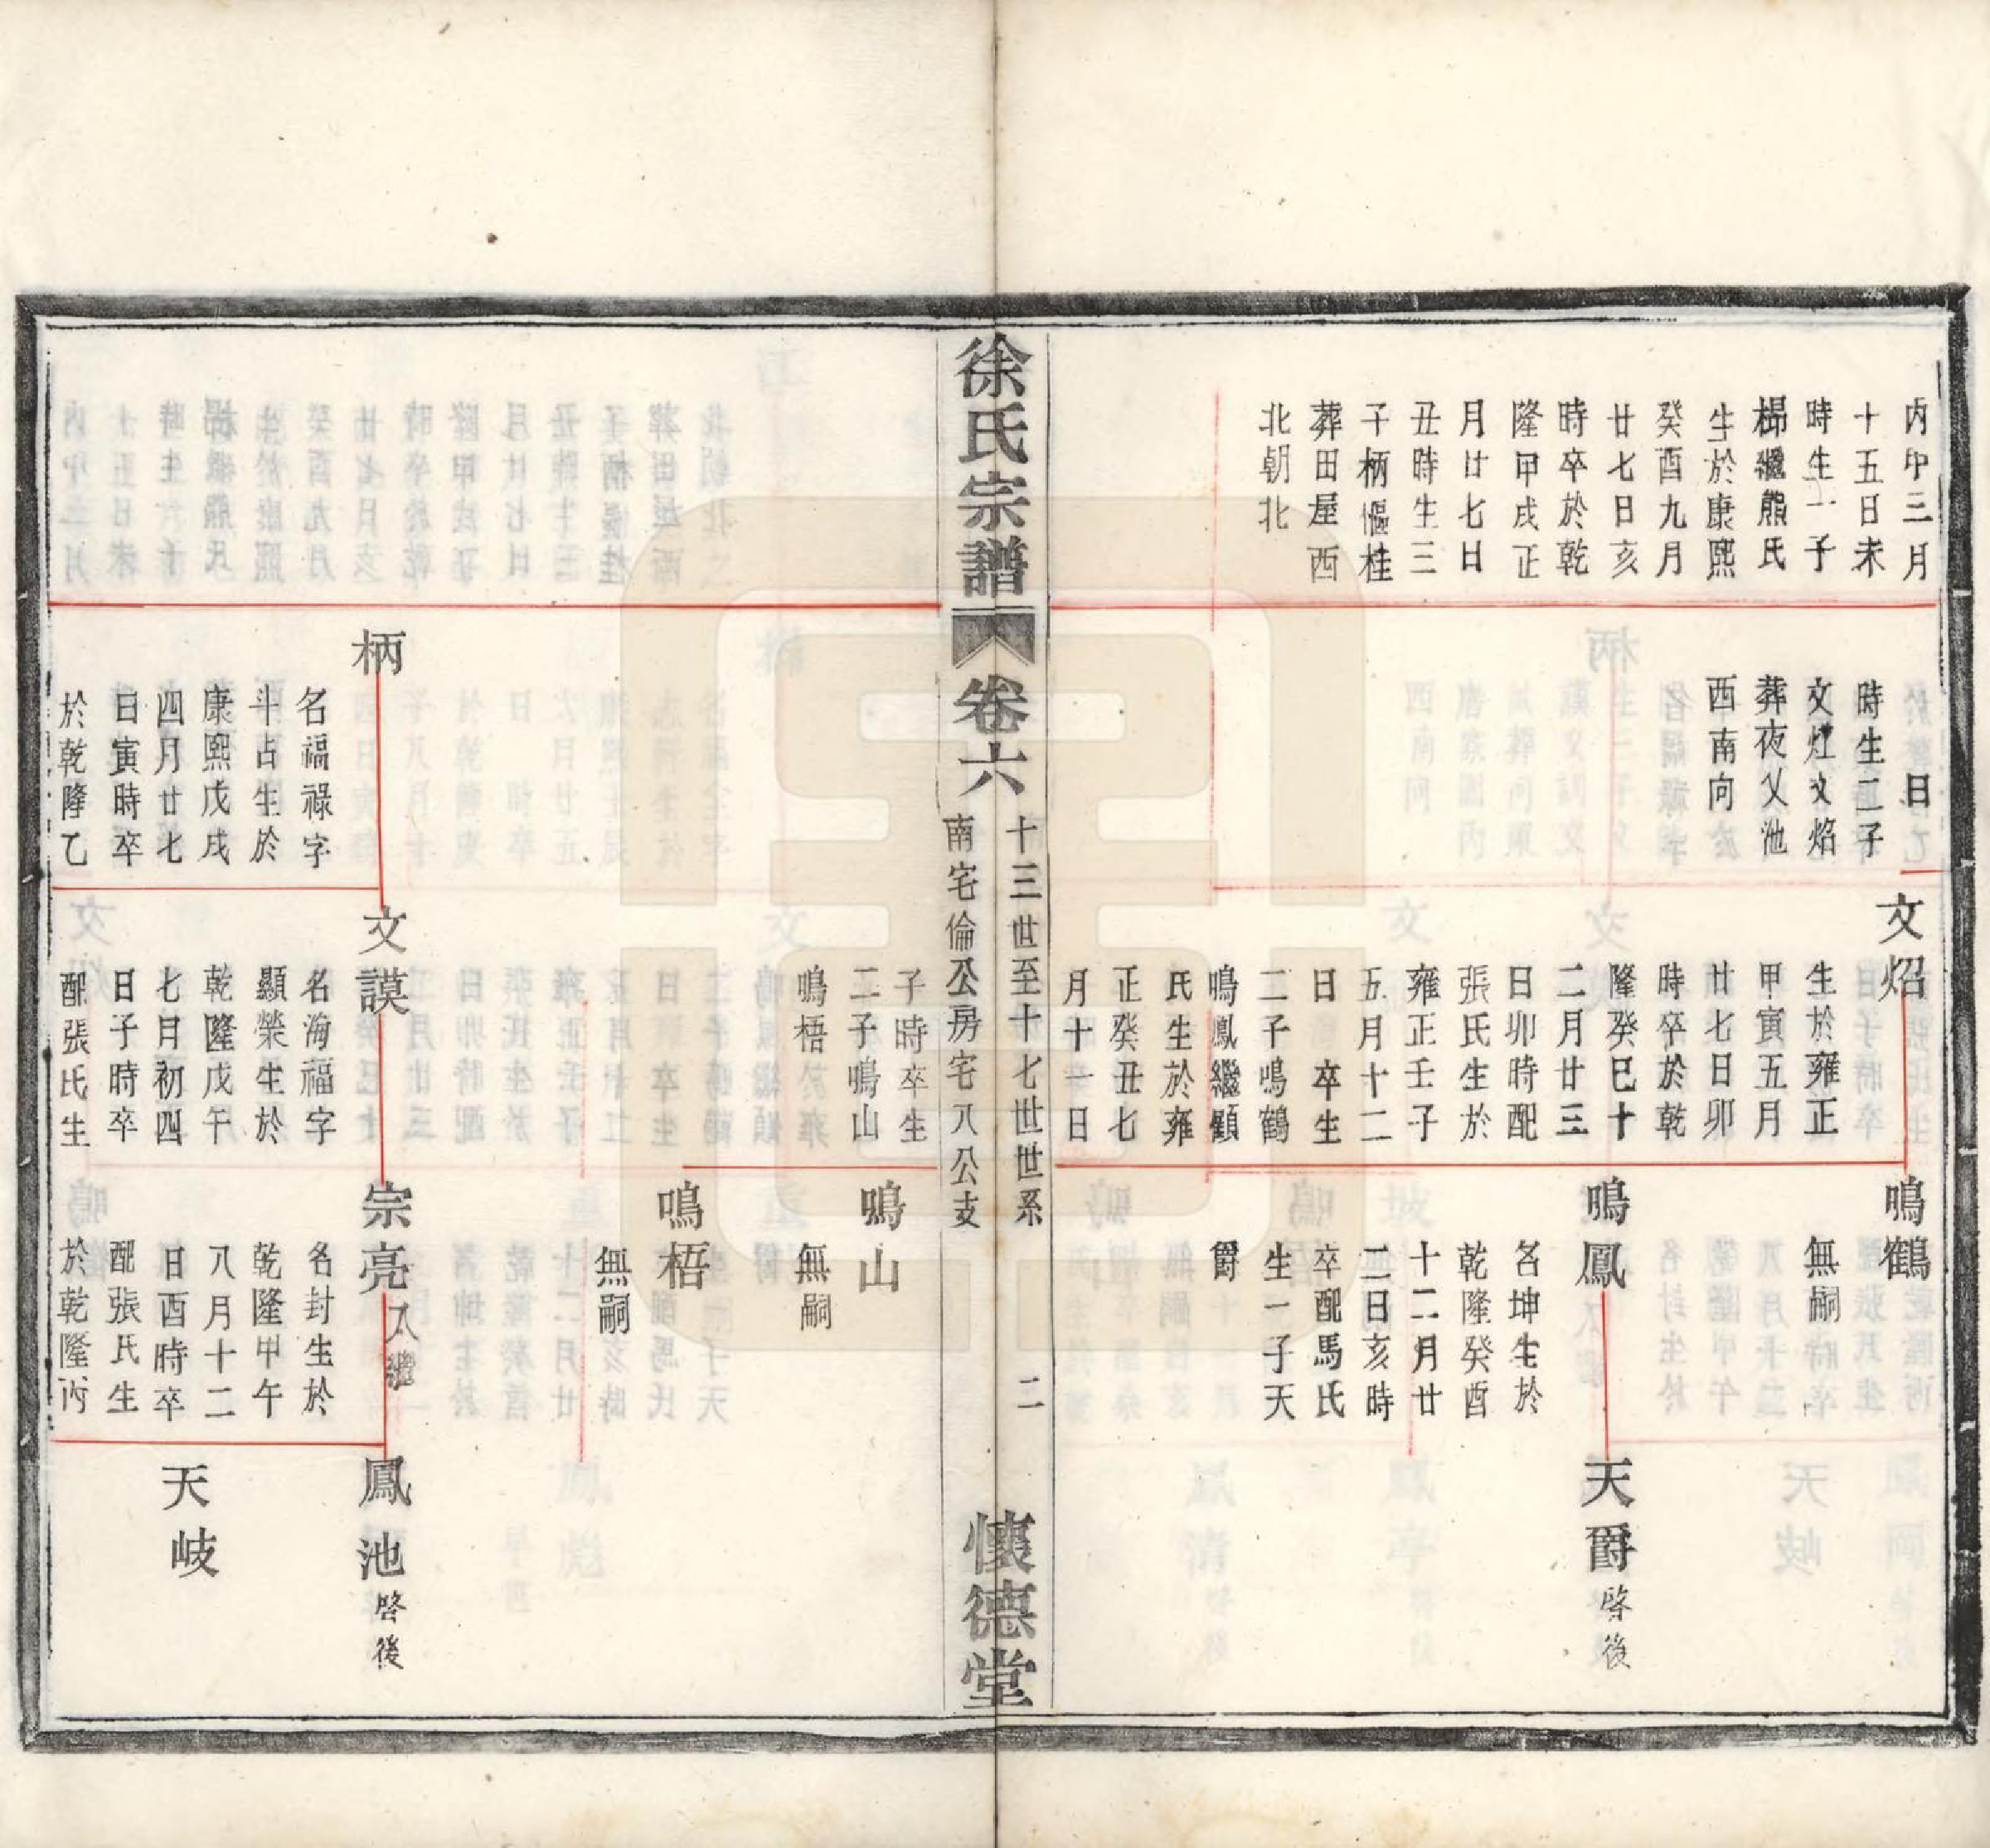 丙申三月
十五日未
時生一子
㭿繼熊氏
生於康熙
癸酉九月
廿七日亥
時卒於乾
隆甲戌正
月廿七日
丑時生三
子柄㰌桂
葬田屋西
北朝北
日
時生二子
文炷文焰
葬夜乂池
西南向
文炤
生於雍正
甲寅五月
廿七日卯
時卒於乾
隆癸巳十
二月廿三
日卯時配
張氏生於
雍正壬子
五月十二
日 卒生
二子鳴鶴
鳴鳳繼顧
氏生於雍
正癸丑七
月十一日
鳴鶴
無嗣
鳴鳳
名坤生於
乾隆癸酉
十二月廿
二日亥時
卒配馬氏
生一子天
爵
天爵 啓後
徐氏宗譜 卷六
十三世至十七世世系
南宅倫公房宅八公支
二
懷德堂
子時卒生
二子鳴山
鳴梧
鳴山
無嗣
鳴梧
無嗣
柄
名福祿字
斗占生於
康熙戊戌
四月廿七
日寅時卒
於乾隆乙
文謨
名海福字
顯榮生於
乾隆戊午
七月初四
日子時卒
配張氏生
宗亮 入繼
名封生於
乾隆甲午
八月十二
日酉時卒
配張氏生
於乾隆丙
鳳池 啓後
天岐